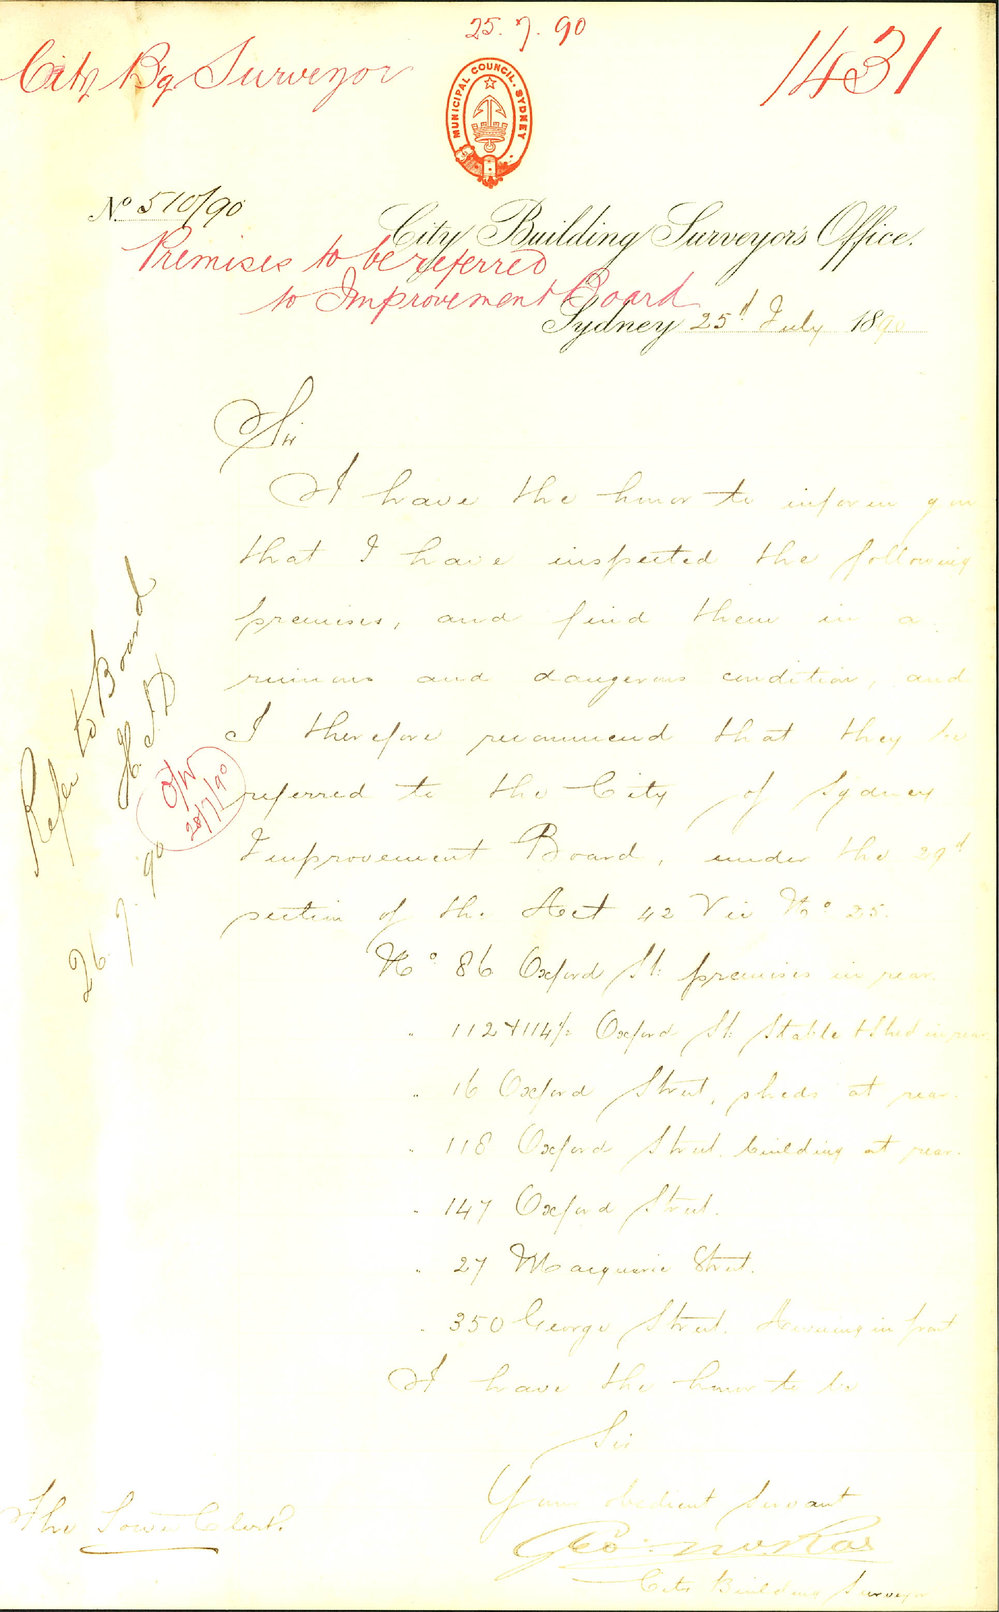 25.7.90
City Bg Surveyor
1431
MUNICIPAL COUNCIL. SYDNEY
No 510/90
City Building Surveyor's Office.
Premises to be referred
to Improvement Board
Sydney 25d July 1890
Sir
I have the honor to inform you
that I have inspected the following
premises, and find them in a
ruinous and dangerous condition, and
I therefore recommend that they be
referred to the City of Sydney
Improvement Board, under the 29d
section of the Act 42 Vic No 25.
No 86 Oxford St. premises in rear.
" 112 & 114 Oxford St. Stable & Shed in rear
" 16 Oxford Street, sheds at rear.
" 118 Oxford Street. building at rear.
" 147 Oxford Street.
" 27 Macquarie Street.
" 350 George Street. Awning in front
I have the honor to be
Sir
Your obedient Servant
Geo.
City Building Surveyor
The Town Clerk.
Refer to Board
26.7.90
28/7/90